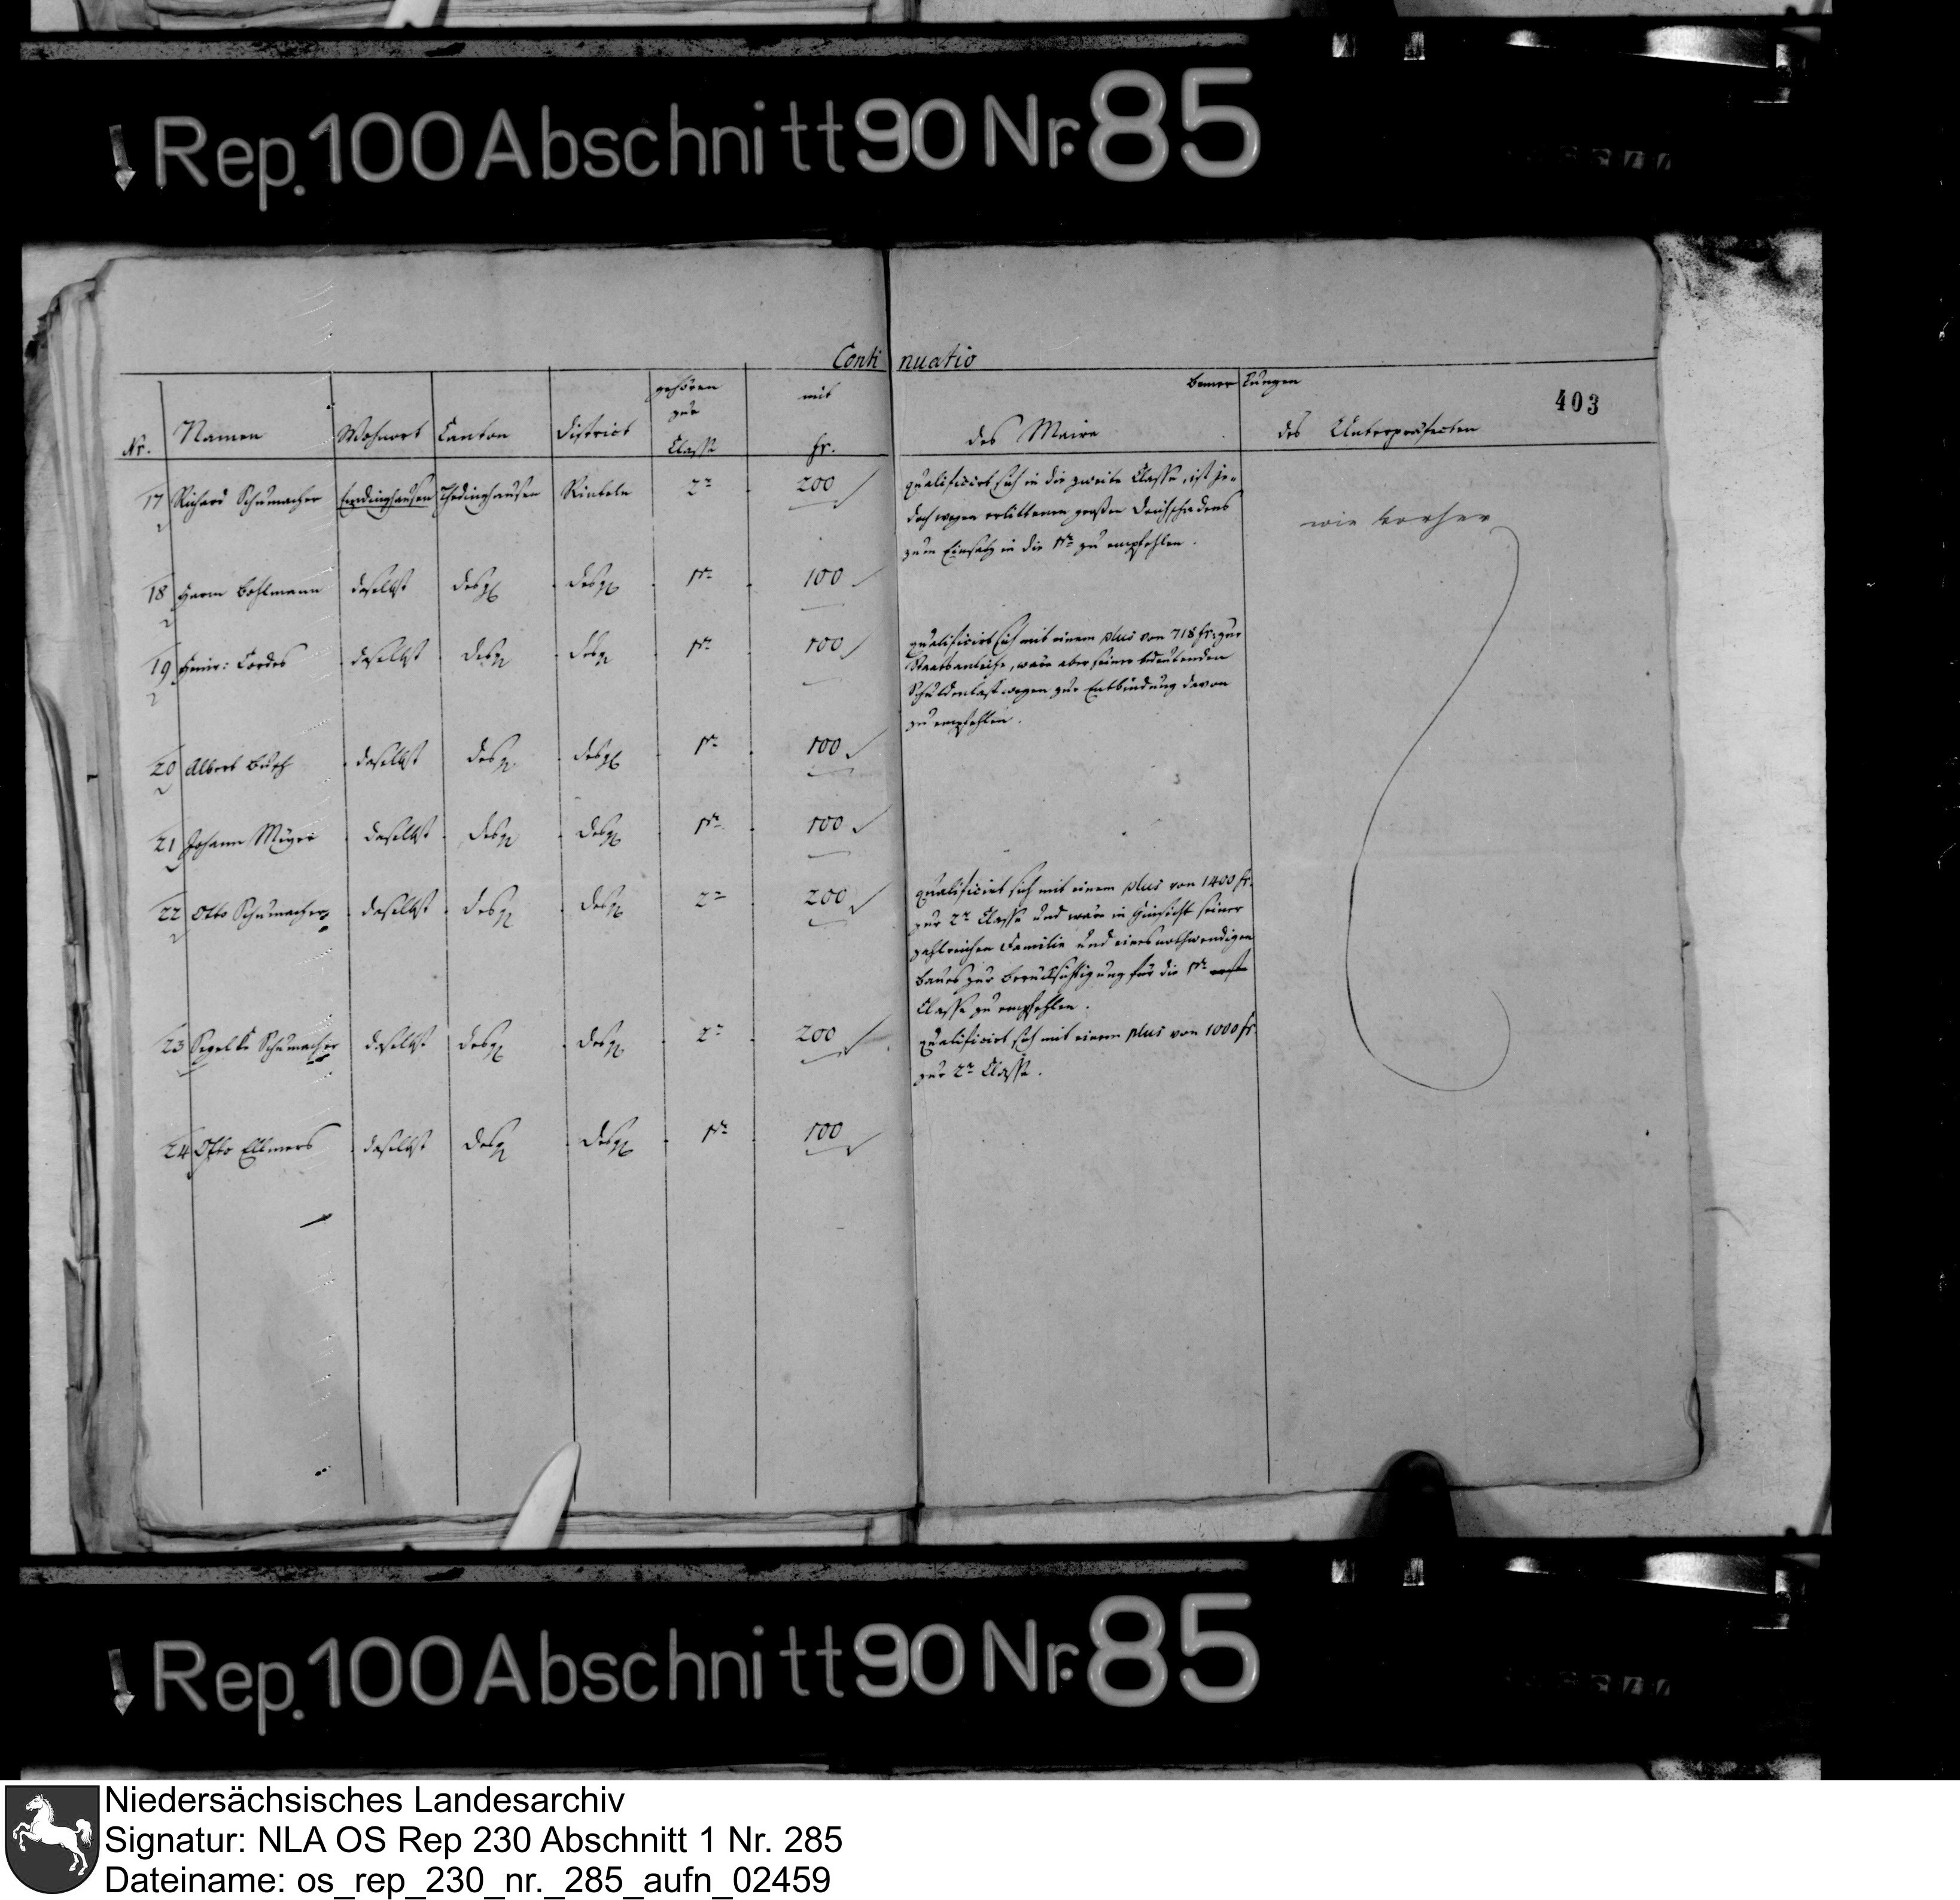 Rep. 100 Abschnitt 90 Nr. 85
Continuatio
403
Nr.
Namen
Wohnort
Canton
District
gehören
zur
Classe
mit
fr.
Bemerkungen
des Maire
des Unterpräfecten
17 Richard Schumacher Emdinghausen Thedinghausen Rinteln 2te 200
qualificirt sich in die zweite Classe, ist je-
doch wegen erlittenen großen Deichschadens
zum Einsatz in die 1te zu empfehlen.
wie vorher
18 Harm Bohlmann daselbst desgl desgl 1te 100
19 Henir: Cordes daselbst desgl desgl 1te 100
qualificirt sich mit einem plus von 718 fr: zur
Staatsanleihe, wäre aber seiner bedeutenden
Schuldenlast wegen zur Entbindung davon
zu empfehlen.
20 Albert daselbst desgl desgl 1te 100
21 Johann Meyer daselbst desgl desgl 1te 100
22 Otto Schumacher daselbst desgl desgl 2te 200
qualificirt sich mit einem plus von 1400 fr.
zur 2te Classe und wäre in Hinsicht seiner
zahlreichen Familie und eines nothwendigen
Baues zur Berücksichtigung für die 1te
Classe zu empfehlen.
23 Segelke Schumacher daselbst desgl desgl 2te 200
qualificirt sich mit einem plus von 1000 fr
zur 2te Classe.
24 Otto Ellmers daselbst desgl desgl 1te 100
Rep. 100 Abschnitt 90 Nr. 85
Niedersächsisches Landesarchiv
Signatur: NLA OS Rep 230 Abschnitt 1 Nr. 285
Dateiname: os_rep_230_nr._285_aufn_02459